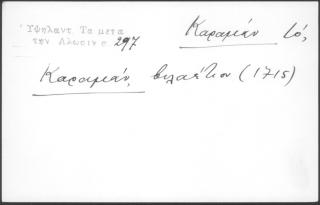 Ὑψηλαντ. Τα μετα
την Αλωσιν σ 297
Καραμάν τό,
Καραμάν, βιλαέτιον (1715)